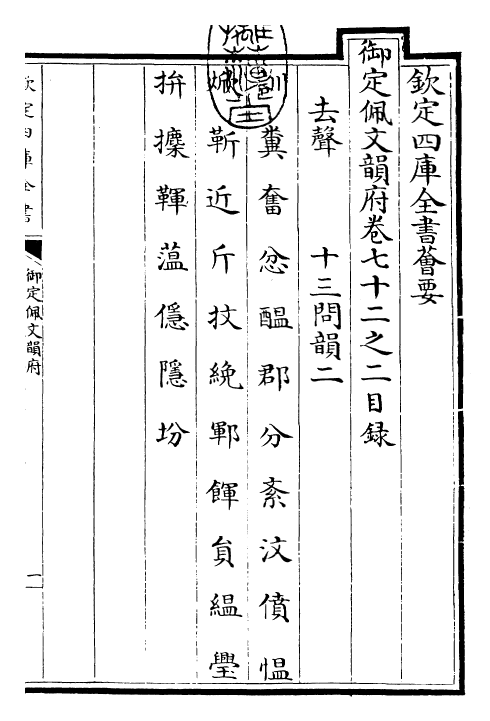 欽定四庫全書薈要
御定佩文韻府卷七十二之二目録
去聲 十三問韻二
訓糞奮忿醖郡分紊汶僨愠
靳近斤抆絻鄆餫貟緼璺
拚攈薀㒚隱坋
欽定四庫全書
御定佩文韻府
一